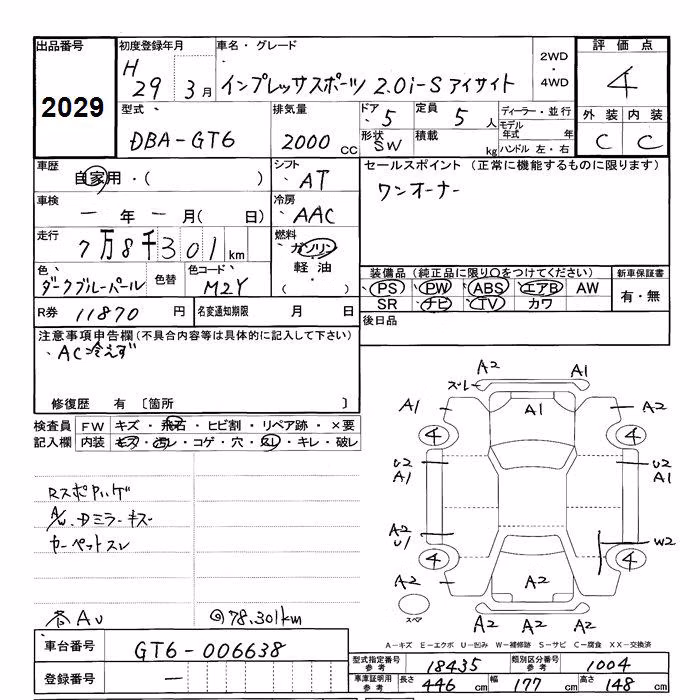 出品番号 2029
初度登録年月 H 29 3月
車名・グレード インプレッサスポーツ 2.0i-S アイサイト
2WD・4WD
評価点 4
外装 内装
C C
型式 DBA-GT6
排気量 2000 CC
ドア 5
定員 5 人
形状 SW
積載 kg
ディーラー・並行
モデル年式 年
ハンドル 左・右
車歴 自家用・( )
シフト AT
セールスポイント (正常に機能するものに限ります)
ワンオーナー
車検 ー年ー月( 日)
冷房 AAC
走行 7万8千301km
燃料 ガソリン・軽油・( )
色 ダークブルーパール
色替
色コード M2Y
装備品 (純正品に限り〇をつけてください)
PS PW ABS エアB AW
SR ナビ TV カワ
新車保証書 有・無
R券 11870 円
名変通知期限 月 日
後日品
注意事項申告欄 (不具合内容等は具体的に記入して下さい)
・AC冷えず
修復歴 有 〔箇所 〕
検査員記入欄
FW キズ・飛石・ヒビ割・リペア跡・×要
内装 キズ・汚レ・コゲ・穴・スレ・キレ・破レ
A/W.Dミラーキズ
カーペットスレ
@78.301km
A2
スレ A1
A1 A1 A2
4 4
U2 U2
A1 A1
A2
U1 W2
4 4
A2 A2 A2
スペア
A2 A2 A2
A-キズ E-エクボ U-凹み W-補修跡 S-サビ C-腐食 XX-交換済
車台番号 GT6-006638
登録番号 ー
型式指定番号参考 18435
類別区分番号参考 1004
車庫証明用参考 長さ 446 cm 幅 177 cm 高さ 148 cm